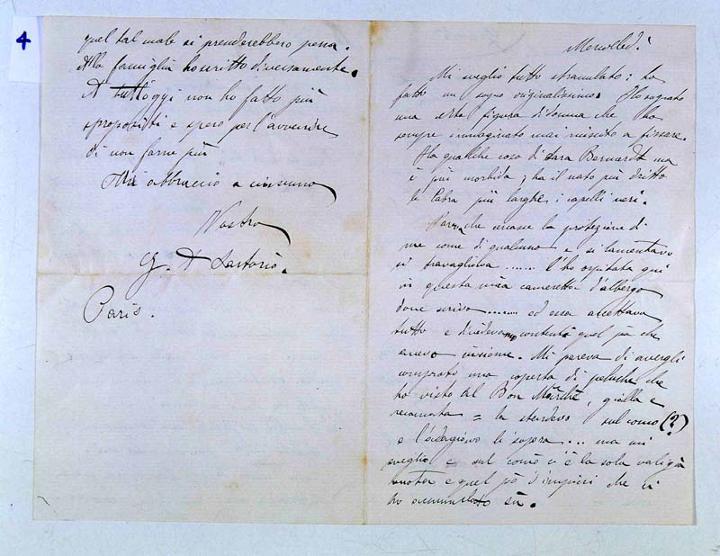 4
quel tal male si prenderebbero pena.
Alla famiglia ho scritto diversamente.
A tutt'oggi non ho fatto più
spropositi e spero per l'avvenire
di non farne più
Mi abbraccio a ciascuno
Vostro
G. A Sartorio.
Paris.
Mercoledì
Mi sveglio tutto stralunato; ho
fatto un sogno originalissimo. Ho sognato
una certa figura di donna che ho
sempre immaginato mai riuscito a fissare.
Ha qualche cosa di Sara Bernardt ma
è più morbida; ha il naso più diritto
le labra più larghe, i capelli neri.
che invasse la protezione di
me come di qualcuno e si lamentava
si travagliava ...... l'ho ospitata qui
in questa mia cameretta d'albergo
dove scrivo ....... ed essa accettava
tutto e contenta quel pò che
avevo insieme. Mi pareva di avergli
comprato una coperta di peluche che
ho visto al Bon Marché, gialla e
recamata = la stendevo sul comò (?)
e l'adagiavo li sopra .... ma mi
sveglio e sul comò c'è la sola valigia
vuota e quel pò d'impicci che ci
ho su.